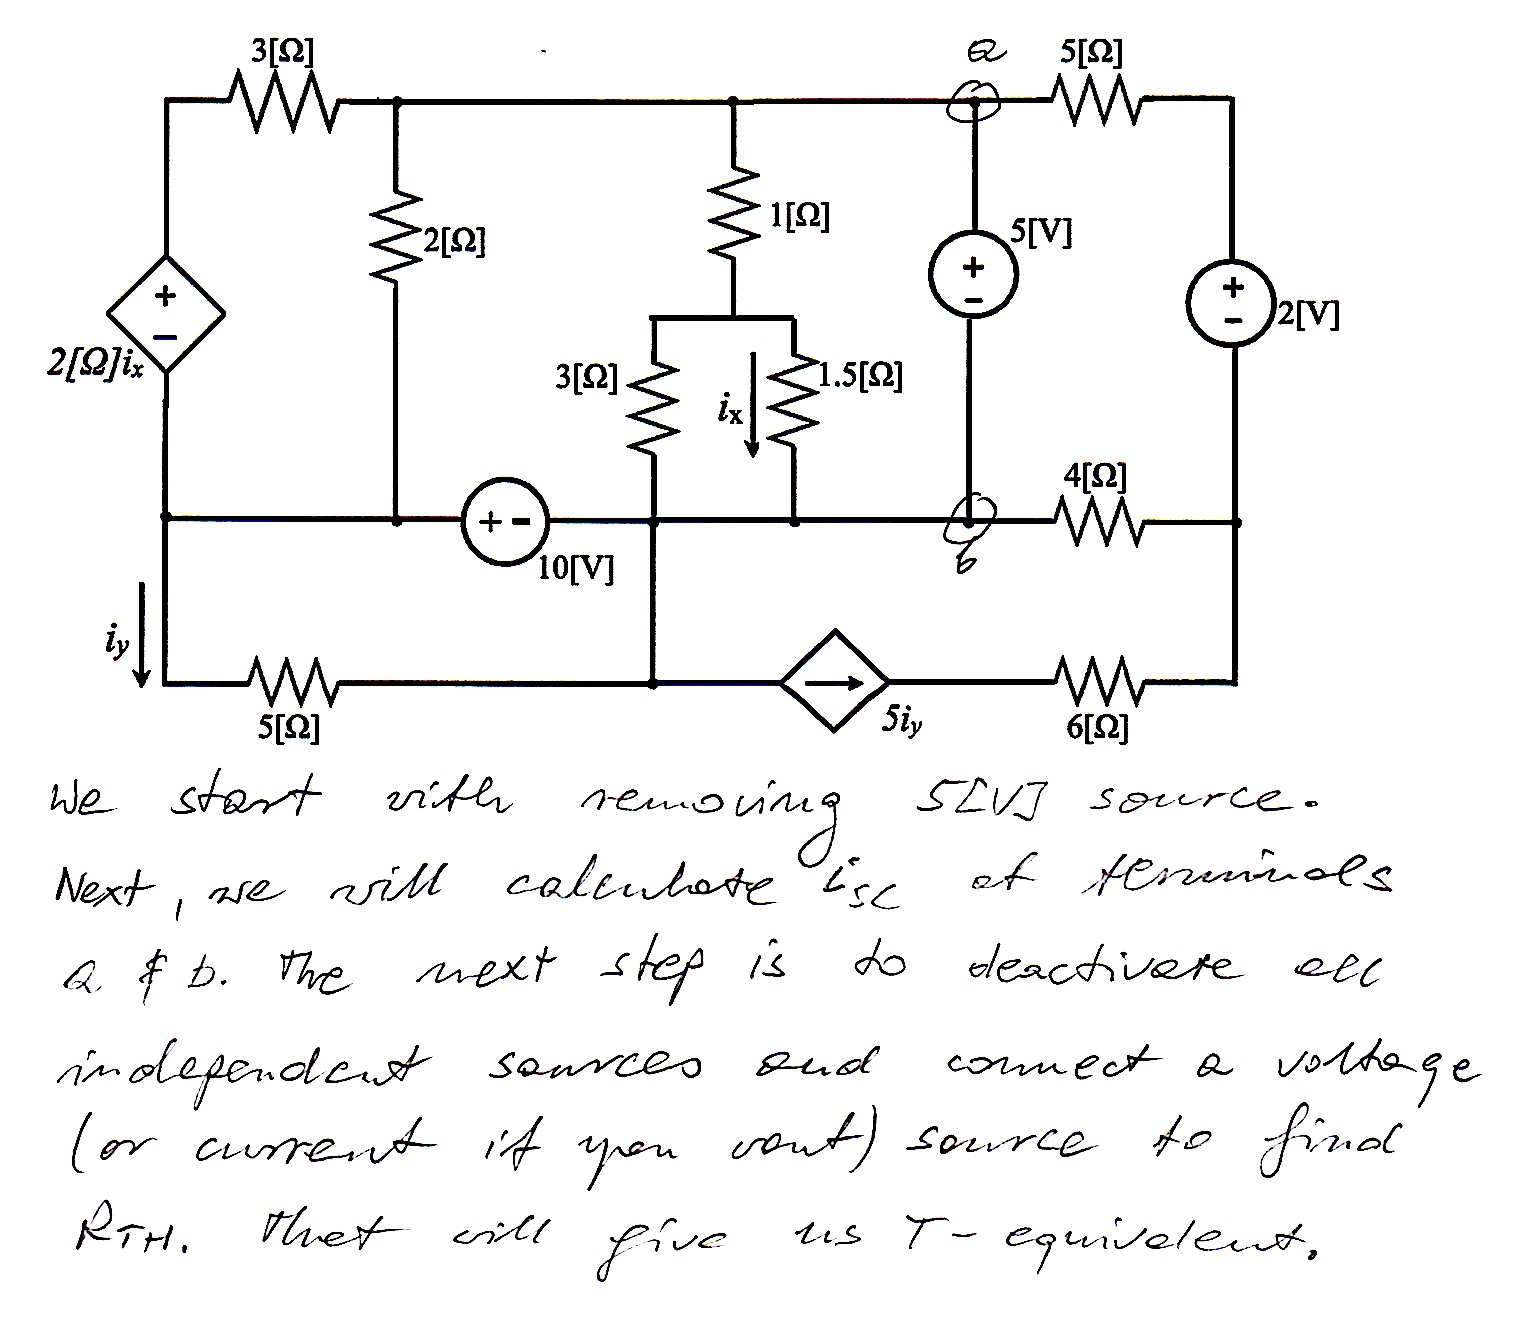 3[Ω]
a
5[Ω]
2[Ω]
1[Ω]
5[V]
+
-
+
-
+
-
2[V]
2[Ω]ix
3[Ω]
ix
1.5[Ω]
4[Ω]
+ -
10[V]
b
iy
5[Ω]
5iy
6[Ω]
We start with removing 5[V] source.
Next, we will calculate iSC at terminals
a & b. The next step is to deactivate all
independent sources and connect a voltage
(or current if you want) source to find
RTH. That will give us T-equivalent.